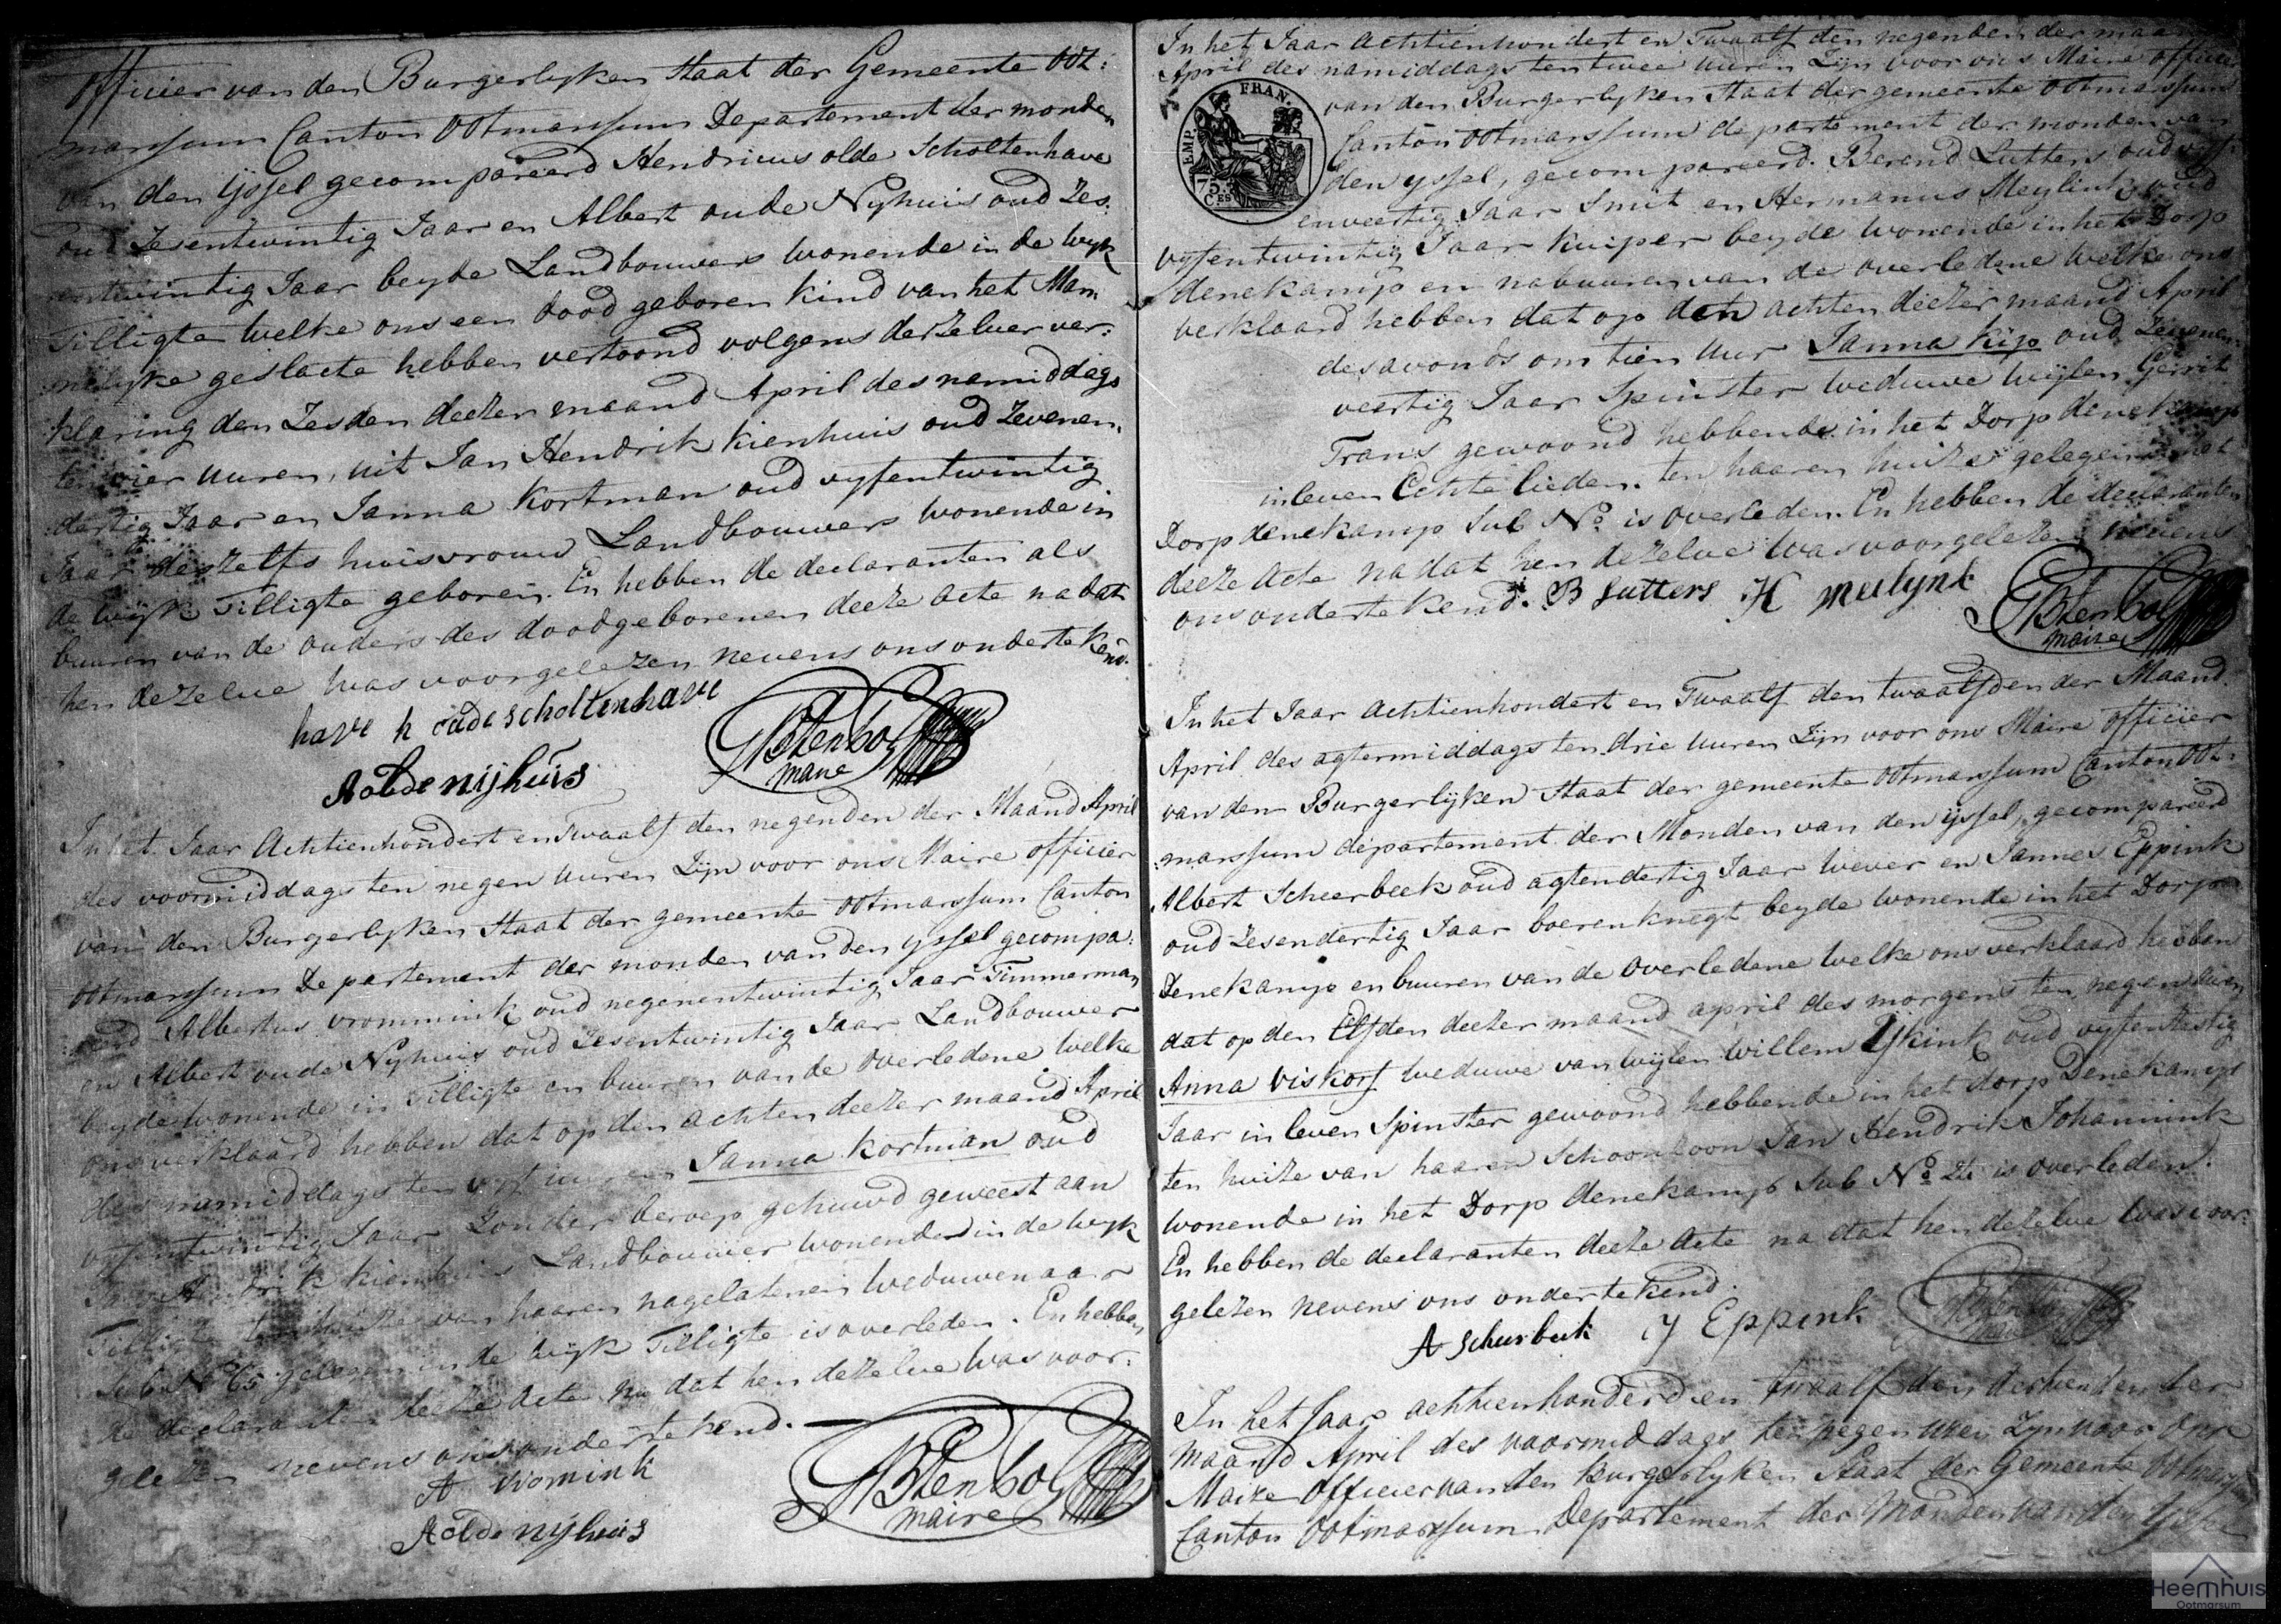 officier van den Burgerlyken Staat der Gemeente Oot:
marssum Canton Ootmarssum Departement der monden
van den Yssel gecompareerd Hendricus olde Scholtenhave
oud Zesentwintig Jaar en Albert oude Nyhuis oud Zes:
entwintig Jaar beyde Landbouwers wonende in de wyk
Tilligte welke ons een dood geboren kind van het Man:
nelyke geslacte hebben vertoond volgens derzelver ver:
klaring den Zesden deezer maand April des namiddags
ten vier uuren, uit Jan Hendrik Kienhuis oud Zevenen:
dertig Jaar en Janna Kortman oud vyfentwintig
Jaar deszelfs huisvrouw Landbouwers wonende in
de wijk Tilligte geboren. En hebben de declaranten als
buuren van de ouders des doodgeborenen deeze acte na dat
hen dezelve was voorgelezen nevens ons ondertekend.
have h oude scholtenhave
A olde nijhuis
maire
In het Jaar Achtienhondert en Twaalf den negenden der Maand April
des voormiddags ten negen uuren Zyn voor ons Maire officier
van den Burgerlyken Staat der gemeente Ootmarssum Canton
Ootmarssum Departement der monden van den yssel gecompa:
reerd Albertus vrommink oud negenentwintig Jaar Timmerman
en Albert oude Nyhuis oud Zesentwintig Jaar Landbouwer
beyde wonende in Tilligte en buuren van de overledene welke
ons verklaard hebben dat op den achten deezer maand April
des namiddags ten vyf uuren Janna Kortman oud
vyfentwintig Jaar Zonder beroep gehuwd geweest aan
Jan Hendrik Kienhuis Landbouwer wonende in de wyk
Tilligte ten huize van haaren nagelatenen weduwenaar
Sub No 65 gelegen in de wyk Tilligte is overleden. En hebben
de declaranten deeze acte na dat hen dezelve was voor:
gelezen nevens ons ondertekend.
A vromink
A olde nijhuis
maire
In het Jaar Achtienhondert en Twaalf den negenden der maand
April des namiddags ten twee uuren Zyn voor ons Maire officier
van den Burgerlyken Staat der gemeente Ootmarssum
Canton Ootmarssum departement der monden van
den yssel, gecompareerd. Berend Lutters oud vyf:
enveertig Jaar Smit en Hermanus Meylink oud
vyfentwintig Jaar kuiper beyde wonende in het Dorp
denekamp en nabuuren van de overledene welke ons
verklaard hebben dat op den achten deezer maand April
des avonds om tien uur Janna Kip oud Zevenen:
veertig Jaar Spinster weduwe wijlen Gerrit
Frans gewoond hebbende in het Dorp denekamp
in leven Echte lieden. ten haaren huize gelegen in het
Dorp denekamp Sub No. is overleden. En hebben de declaranten
deeze Acte na dat hen dezelve was voorgelezen nevens
ons ondertekend. B Lutters H Meilynk
maire
EMP. FRAN.
75.
C.ES
In het Jaar Achtienhondert en Twaalf den twaalfden der Maand
April des agtermiddags ten drie uuren Zyn voor ons Maire officier
van den Burgerlyken Staat der gemeente Ootmarssum Canton Oot:
marssum departement der Monden van den yssel, gecompareerd
Albert Scheerbeek oud agtendertig Jaar wever en Jannes Eppink
oud Zesendertig Jaar boerenknegt beyde wonende in het Dorp
Denekamp en buuren van de overledene welke ons verklaard hebben
dat op den Elfden deezer maand april des morgens ten negen uuren
Anna Viskorf weduwe van wijlen Willem Ykink oud vyfentzestig
Jaar in leven Spinster gewoond hebbende in het dorp Denekamp
ten huize van haaren Schoonzoon Jan Hendrik Johannink
wonende in het Dorp denekamp Sub No 26 is overleden.
En hebben de declaranten deeze Acte na dat hen dezelve was voor:
gelezen nevens ons ondertekend
A Scheerbeek J Eppink
In het Jaar achtienhonderd en twaalf den dertienden der
maand April des voormiddags ten negen uuren Zyn voor Ons
Maire Officier van den burgerlyken Staat der Gemeente Ootmarssum
Canton Ootmarssum Departement der Monden van den Yssel
Heemhuis
Ootmarsum